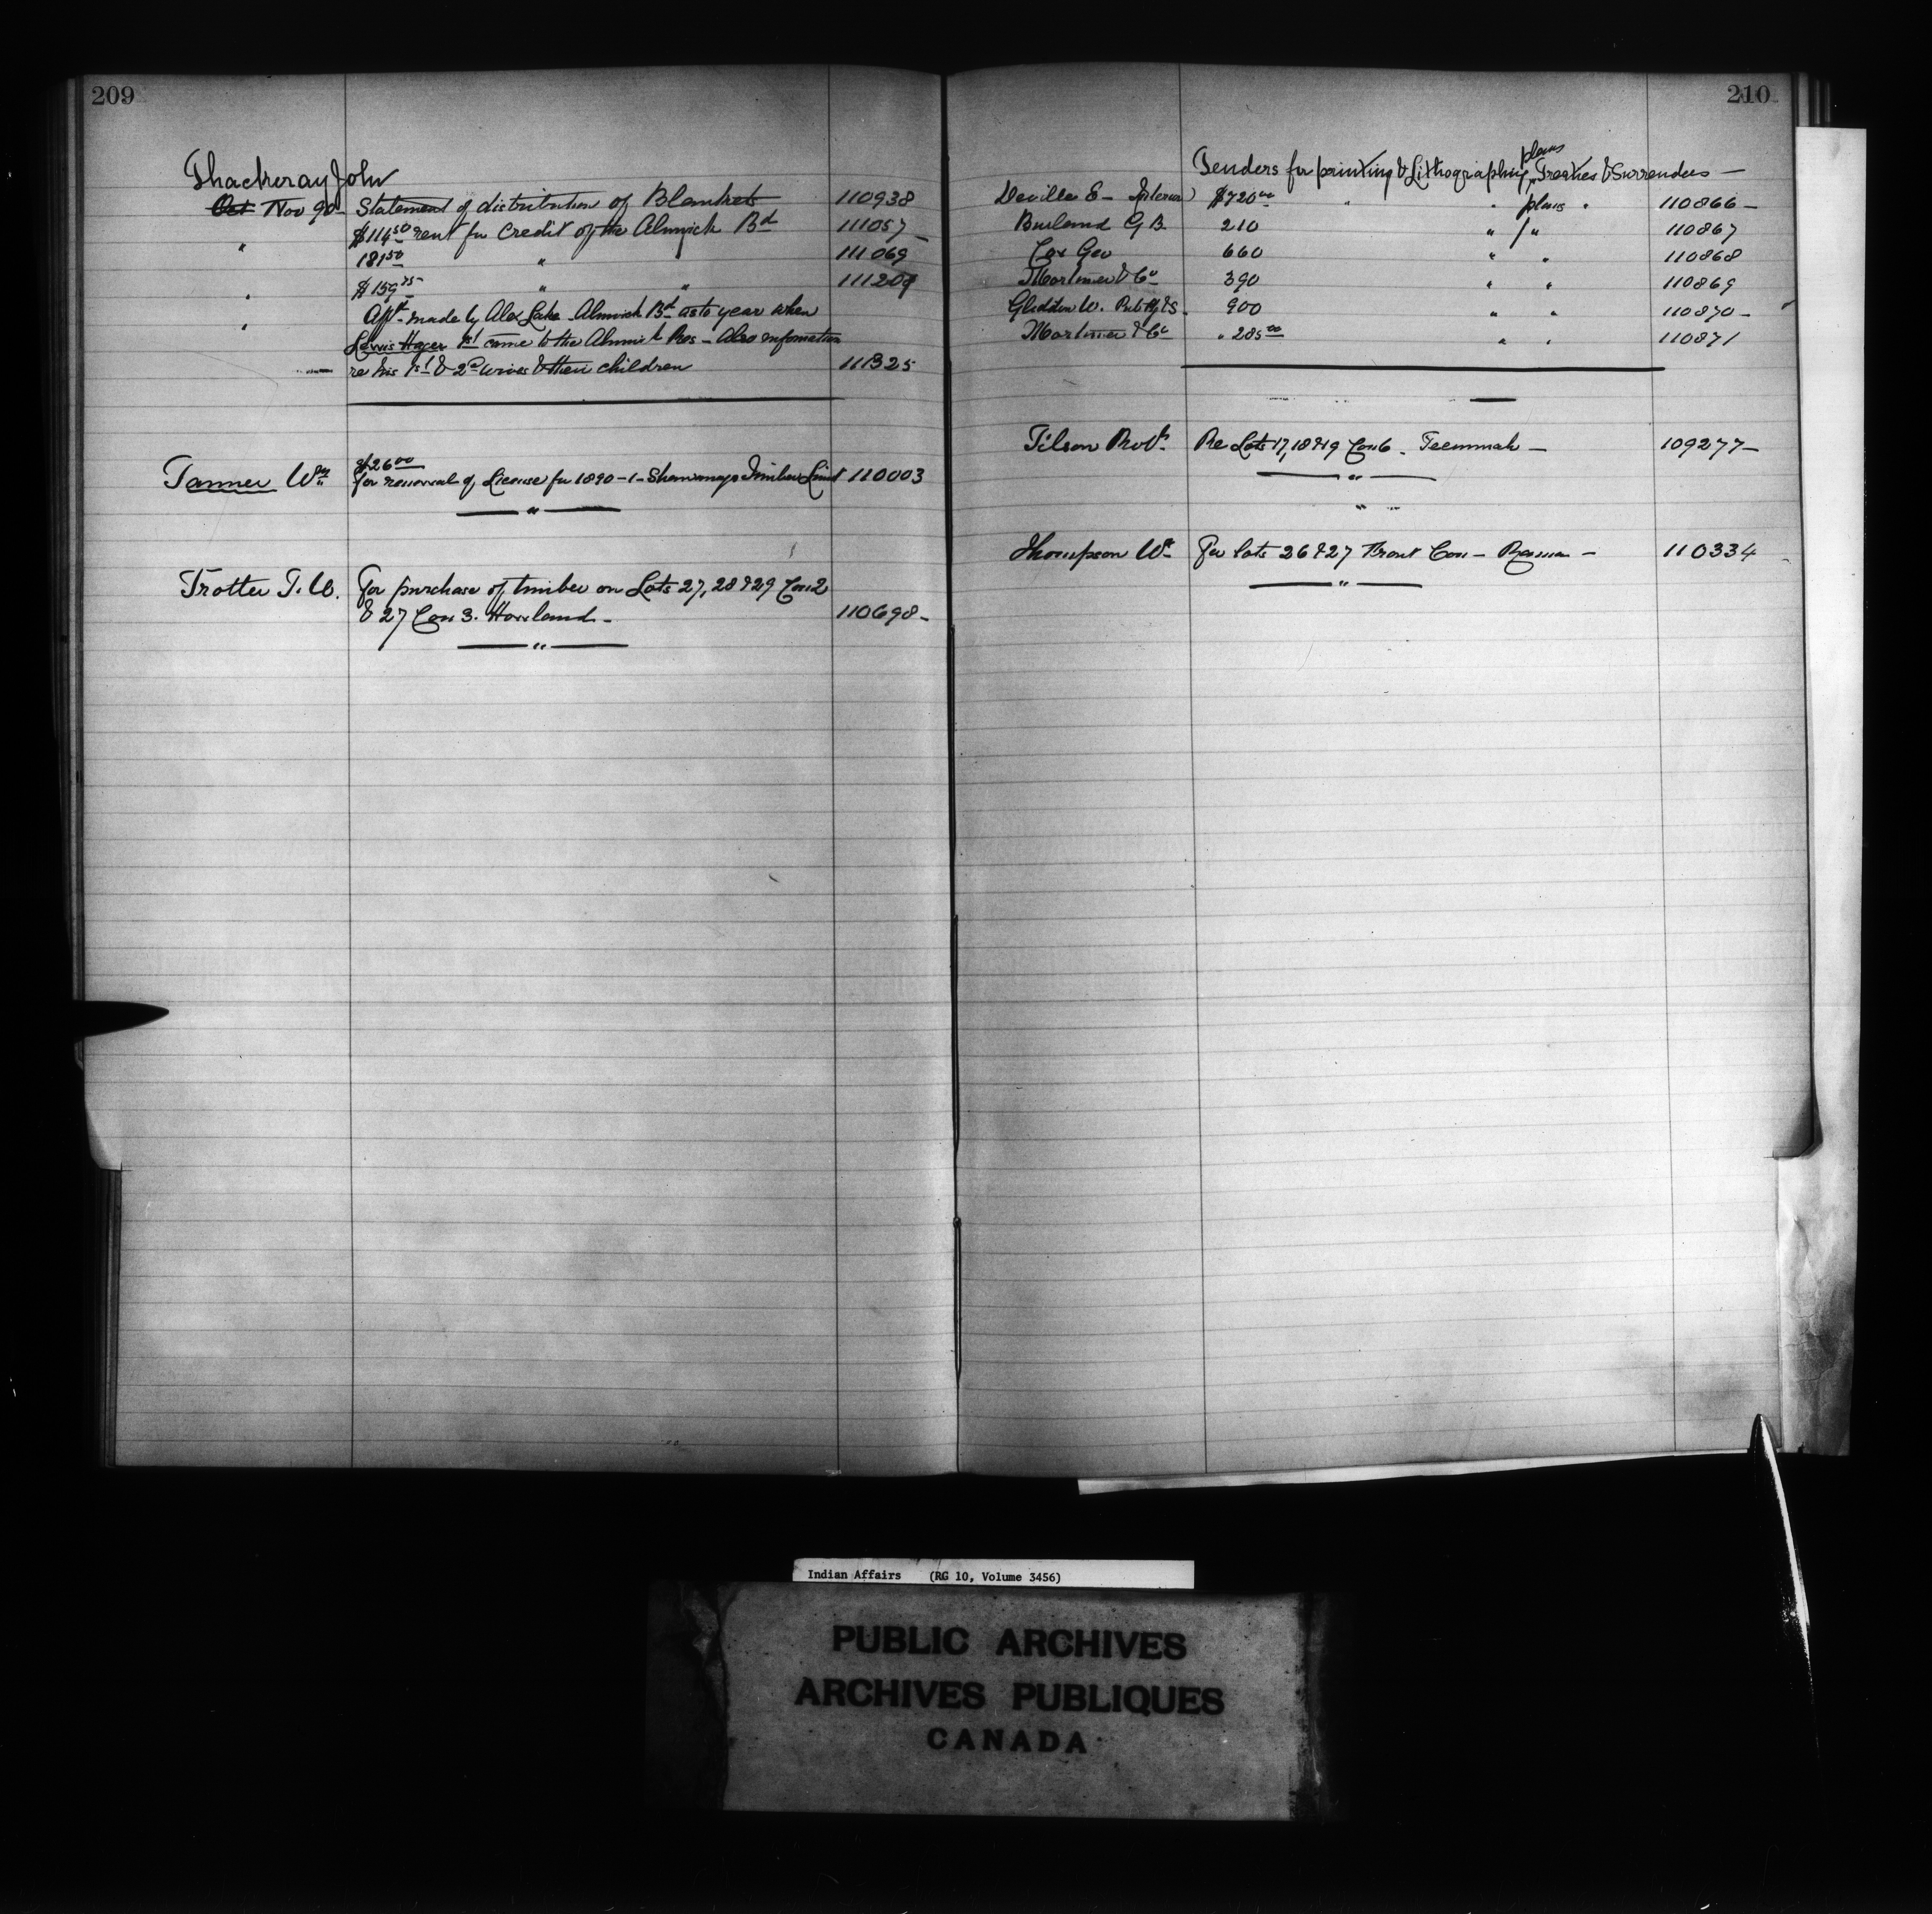 209
Thackeray John
Oct Nov 90 - Statement of distribution of Blankets 110938
" $114.50 rent for credit of the Alnwick Bd 111057 -
181.50 " " 111069
" $159.75 " " 111209
" Appn made by Alex Lake Alnwick Bd as to year when
Lewis Hager 1st came to the Alnwick Res - Also information
re his 1st & 2d wives & their children 111325
$26.00
Tanner Wm For renewal of License for 1890-1 - Timber Limit 110003
"
Trotter T. W. For purchase of timber on Lots 27, 28 & 29 Con 2
& 27 Con 3. Howland - 110698 -
"
210
plans
Tenders for printing & Lithographing Treaties & Surrenders -
Deville E - Interior $720.00 " " plans " 110866 -
Burland G B. 210 " " 110867
Cox Geo 660 " " 110868
Mortimer & Co 390 " " 110869
Gliddon W. 900 " " 110870 -
Mortimer & Co " 285.00 " " 110871
Tilson Robt. Re Lots 17, 18 & 19 Con 6 - Tecumseh - 109277 -
"
" "
Thompson Wm For lots 26 & 27 Front Con - 110334
"
Indian Affairs (RG 10, Volume 3456)
PUBLIC ARCHIVES
ARCHIVES PUBLIQUES
CANADA